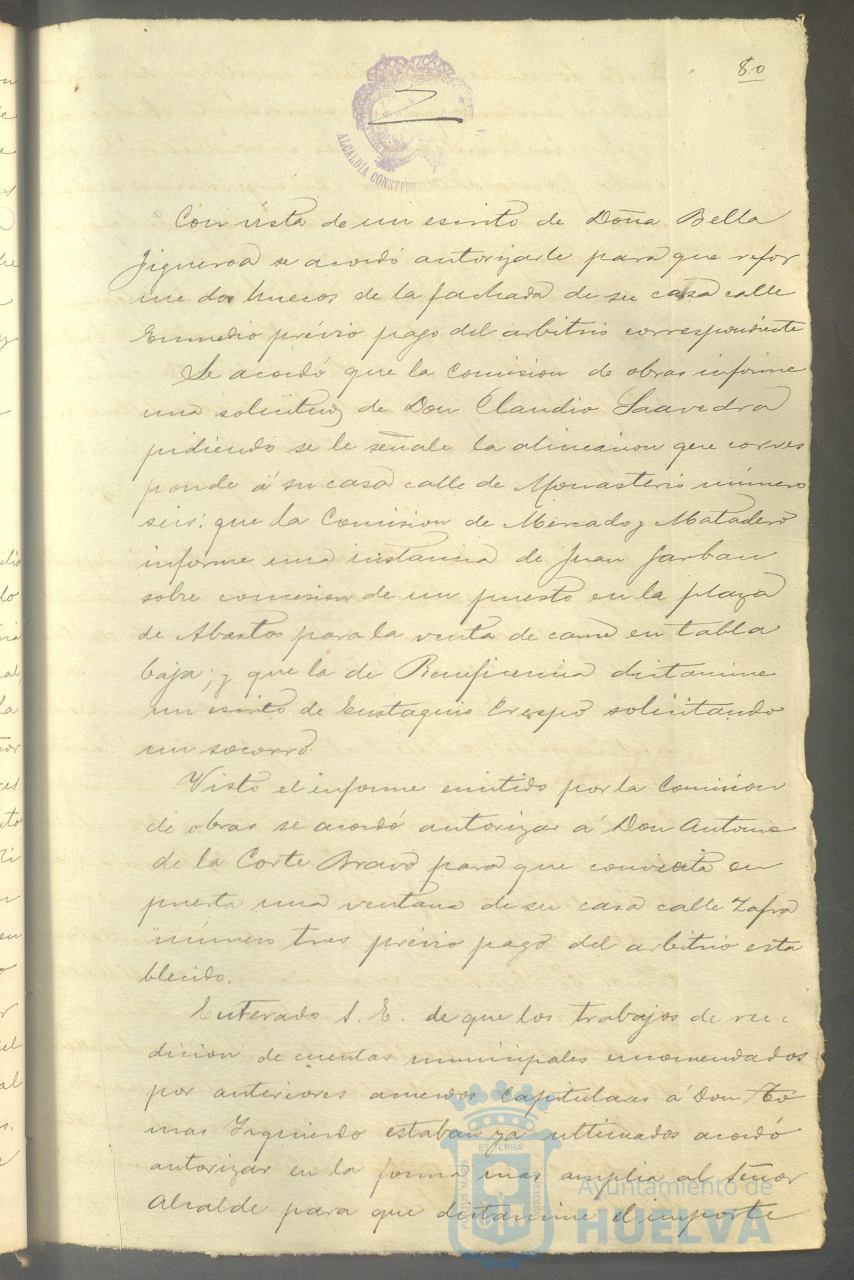 80
ALCALDÍA CONSTITUCIONAL
Con vista de un escrito de Doña Bella
Figueroa se acordó autorizarle para que refor
me dos huecos de la fachada de su casa calle
Enmedio prévio pago del arbitrio correspondiente
Se acordó que la Comision de obras informe
una solicitud de Don Claudio Saavedra
pidiendo se le señale la alineacion que corres
ponde á su casa calle de Monasterio número
seis: que la Comision de Mercado y Matadero
informe una instancia de Juan
sobre concesion de un puesto en la plaza
de Abastos para la venta de carne en tabla
baja; y que la de Beneficencia dictamine
un escrito de Eustaquio Crespo solicitando
un socorro.
Visto el informe emitido por la Comision
de obras se acordó autorizar á Don Antonio
de la Corte Bravo para que convierta en
puerta una ventana de su casa calle Zafra
número tres prévio pago del arbitrio esta
blecido.
Enterado S. E. de que los trabajos de ren
dicion de cuentas municipales encomendados
por anteriores acuerdos Capitulares á Don To
mas Izquierdo estaban ya ultimados acordó
autorizar en la forma mas amplia al Señor
Alcalde para que dictamine el importe
PORTUS MARIS ET TERRÆ CUSTODIA
Ayuntamiento de
HUELVA